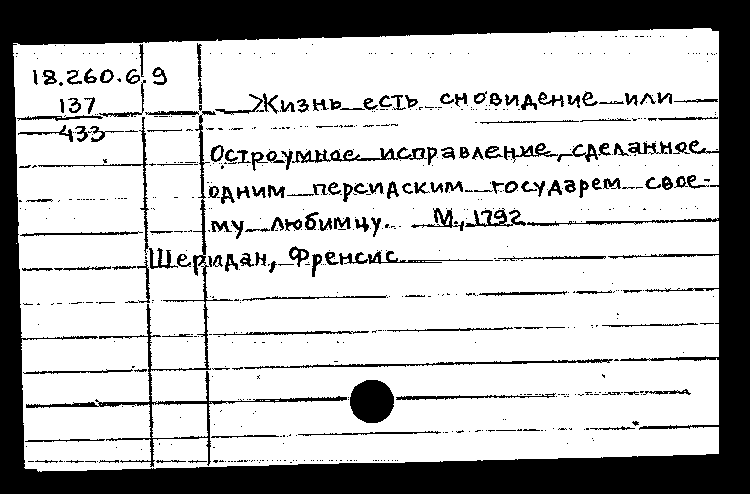 18.260.6.9
137
433
Жизнь есть сновидение или
Остроумное исправление, сделанное
одним персидским государем свое-
му любимцу. М., 1792
Шеридан, Френсис